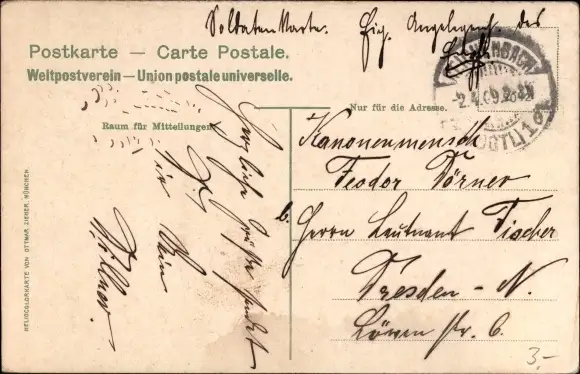 Soldatenkarte. Eig. Angelegenh. des
Postkarte — Carte Postale.
Weltpostverein — Union postale universelle.
Nur für die Adresse.
Raum für Mitteilungen
Herzliche Grüße sendet
Dir Dein
Fr.
Willner.
Kanonenmensch
Feodor Dörner
b. Herrn Leutnant Fischer
Dresden - N.
Löwen str. 6.
HELIOCOLORKARTE VON OTTMAR ZIEHER, MÜNCHEN
3.-